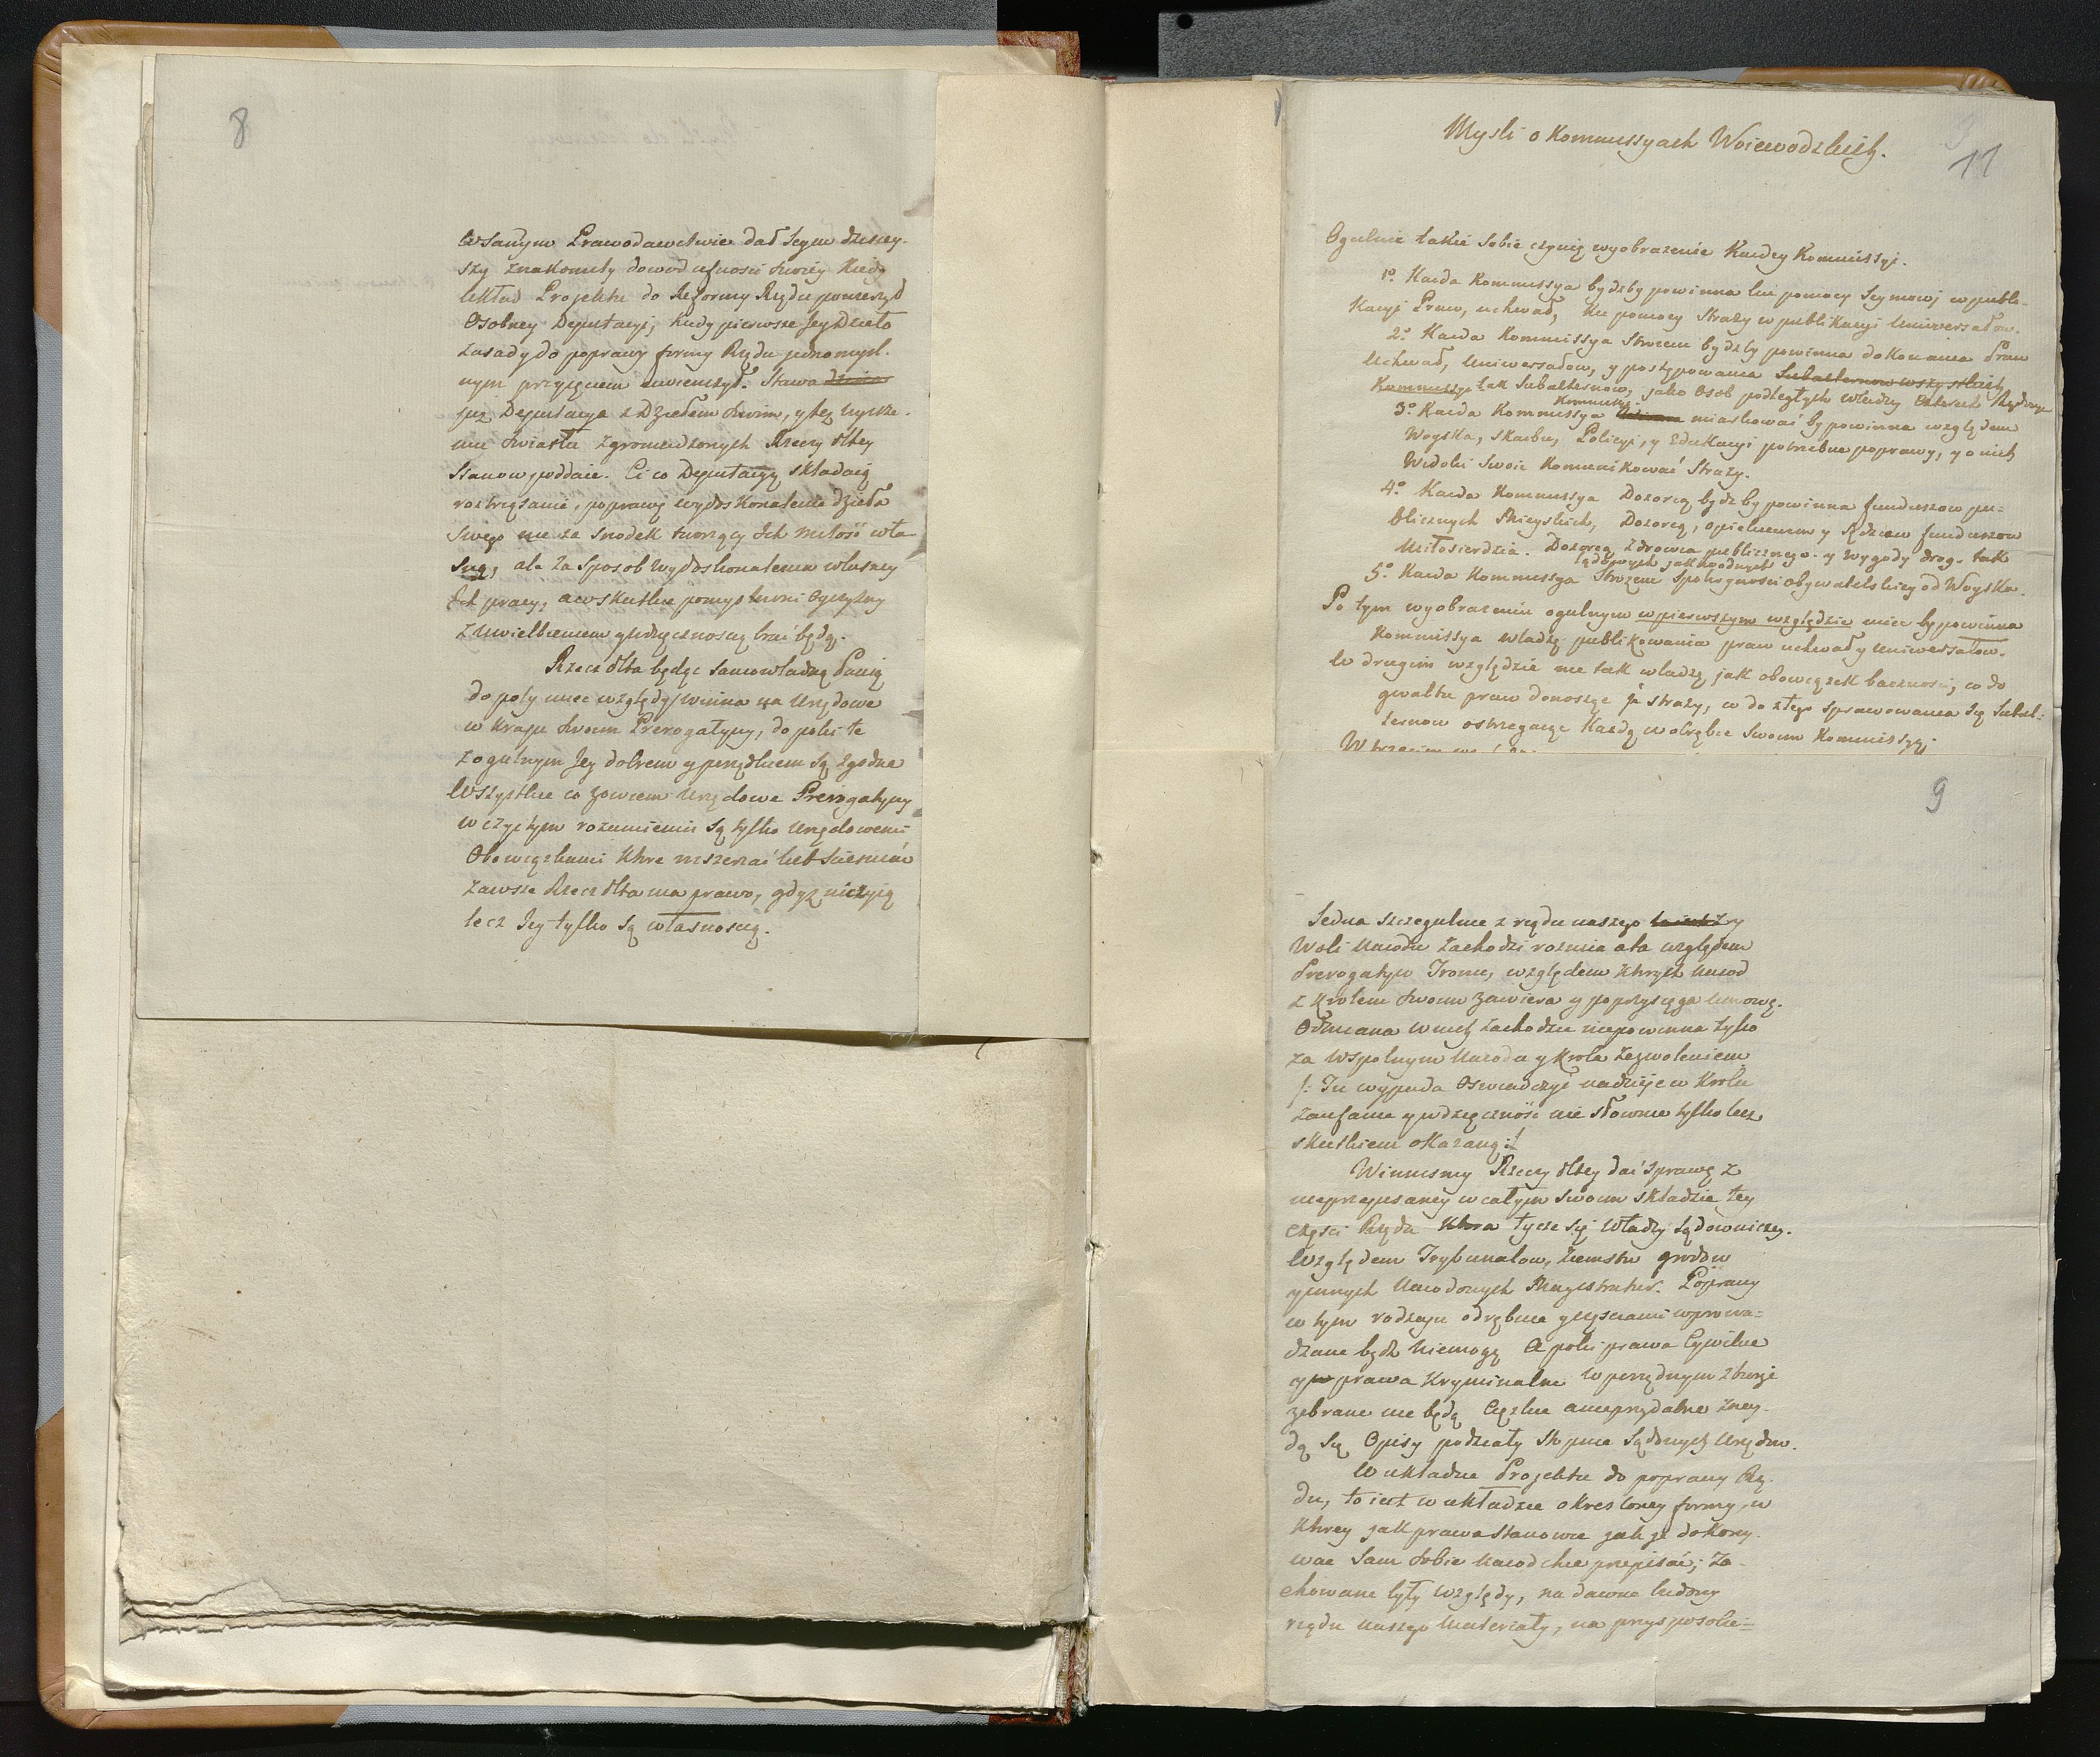 8
W samym Prawodawctwie dał Seym dzisiey-
szy znakomity dowod ufności swoiey kiedy
Układ Projektu do Reformy Rządu powierzył
Osobney Deputacyi, kiedy pierwsze Jey Dzieło
zasady do poprawy formy Rządu jednomysl-
nym przyięciem uwienczył. Stawa
już Deputacya z Dziełem swoim, y też
mu swiatłu zgromadzonych Rzeczypltey
Stanow poddaie. Ci co Deputacyą składaią
roztrząsanie, poprawę wydoskonalenie dzieła
swego nie za srodek tworzący Ich miłość wła-
sną, ale za sposob wydoskonalenia własney
Ich pracy, a w skutku pomyslnosci Oyczyzny
z uwielbieniem y wdzięcznoscią brać będą.
Rzeczplta będąc samowładną Panią
do poty miec względy winna na Urzędowe
w kraju swoim Prerogatywy, do poki te
z ogulnym Jey dobrem y porządkiem są zgodne
Wszystkie co zowiem Urzędowe Prerogatywy
w czystym rozumieniu są tylko Urzędowemi
Obowiązkami ktore rozszerzać lub scieśniać
zawsze Rzeczplta ma prawo, gdyż niczyią
lecz Jey tylko są własnoscią.
11
Mysli o Kommissyach Woiewodzkich.
Ogulnie takie sobie czynię wyobrażenie Każdey Kommissyi.
1º Każda Kommissya bydź by powinna ku pomocy Seymowi w publi-
kacyi Praw, uchwał, ku pomocy Straży w publikacyi Uniwersałow.
2º Każda Kommissya Strożem bydź by powinna dokonania Praw
Uchwał, Uniwersałow, y postępowania Subalternow wszystkich
Kommissyi tak Subalternow, jako Osob podległych władzy
Kommissyi
3º Każda Kommissya miarkować by powinna względem
Woyska, skarbu, Policyi, y Edukacyi potrzebne poprawy, y o nich
Widoki swoie komunikować Straży.
4º Każda Kommissya Dozorcą bydź by powinna funduszow pu-
blicznych Mieyskich, Dozorcą, opiekunem y Sędzią funduszow
Miłosierdzia. Dozorcą Zdrowia publicznego y wygody drog tak
lądowych jak wodnych
5º Każda Kommissya Strożem spokoyności obywatelskiey od Woyska.
Po tym wyobrażeniu ogulnym w pierwszym względzie miec by powinna
Kommissya władzę publikowania praw uchwał y Uniwersałow.
W drugim względzie nie tak władzę jak obowiązek bacznosci, co do
gwałtu praw donosząc ja straży, co do złego sprawowania się Subal-
ternow ostrzegaiąc Każdą w obrębie swoim Kommissyą.
W trzecim
9
Jedna szczegulnie z rządu naszego y
Woli Narodu zachodzi rożnica ato względem
Prerogatyw Tronu, względem ktorych Narod
z Krolem swoim zawiera y poprzysięga umowę.
Odmiana w nich zachodzic niepowinna tylko
za wspolnym Narodu y Krola zezwoleniem
/: Tu wypada Oswiadczyć nadzieje w Krolu
Zaufanie y wdzięczność nie słownie tylko lecz
skutkiem okazaną :/
Winnismy Rzeczypltey dać sprawę z
nieprzepisaney w całym swoim składzie tey
części Rządu ktora tycze się władzy sądowniczey.
Względem Trybunałow, Ziemstw grodow
y innych Narodowych Magistratur. Poprawy
w tym rodzaju odrębnie y częściami wprowa-
dzane bydź niemogą A poki prawa Cywilne
y prawa kryminalne w porządnym zbiorze
zebrane nie będą Ciężkie a nieprzydatne znay-
dą się Opisy podziały stopnie sądowych Urzędow.
W układzie Projektu do poprawy Rzą-
du, to iest w układzie okresloney formy, w
ktorey jak prawa stanowic jak je dokony-
wac sam sobie Narod chce przepisać, Za-
chowane były względy, na dawne budowy
rządu naszego materiały, na przysposobie-